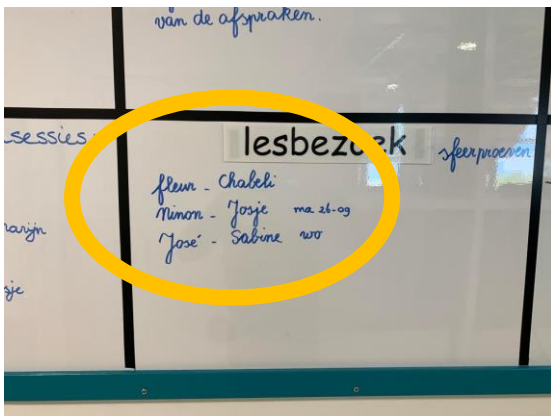 van de afspraken.
sessies:
lesbezoek sfeerproeven
fleur - Chabeli
Ninon - Josje ma 26-09
José - Sabine wo
arijn
sje